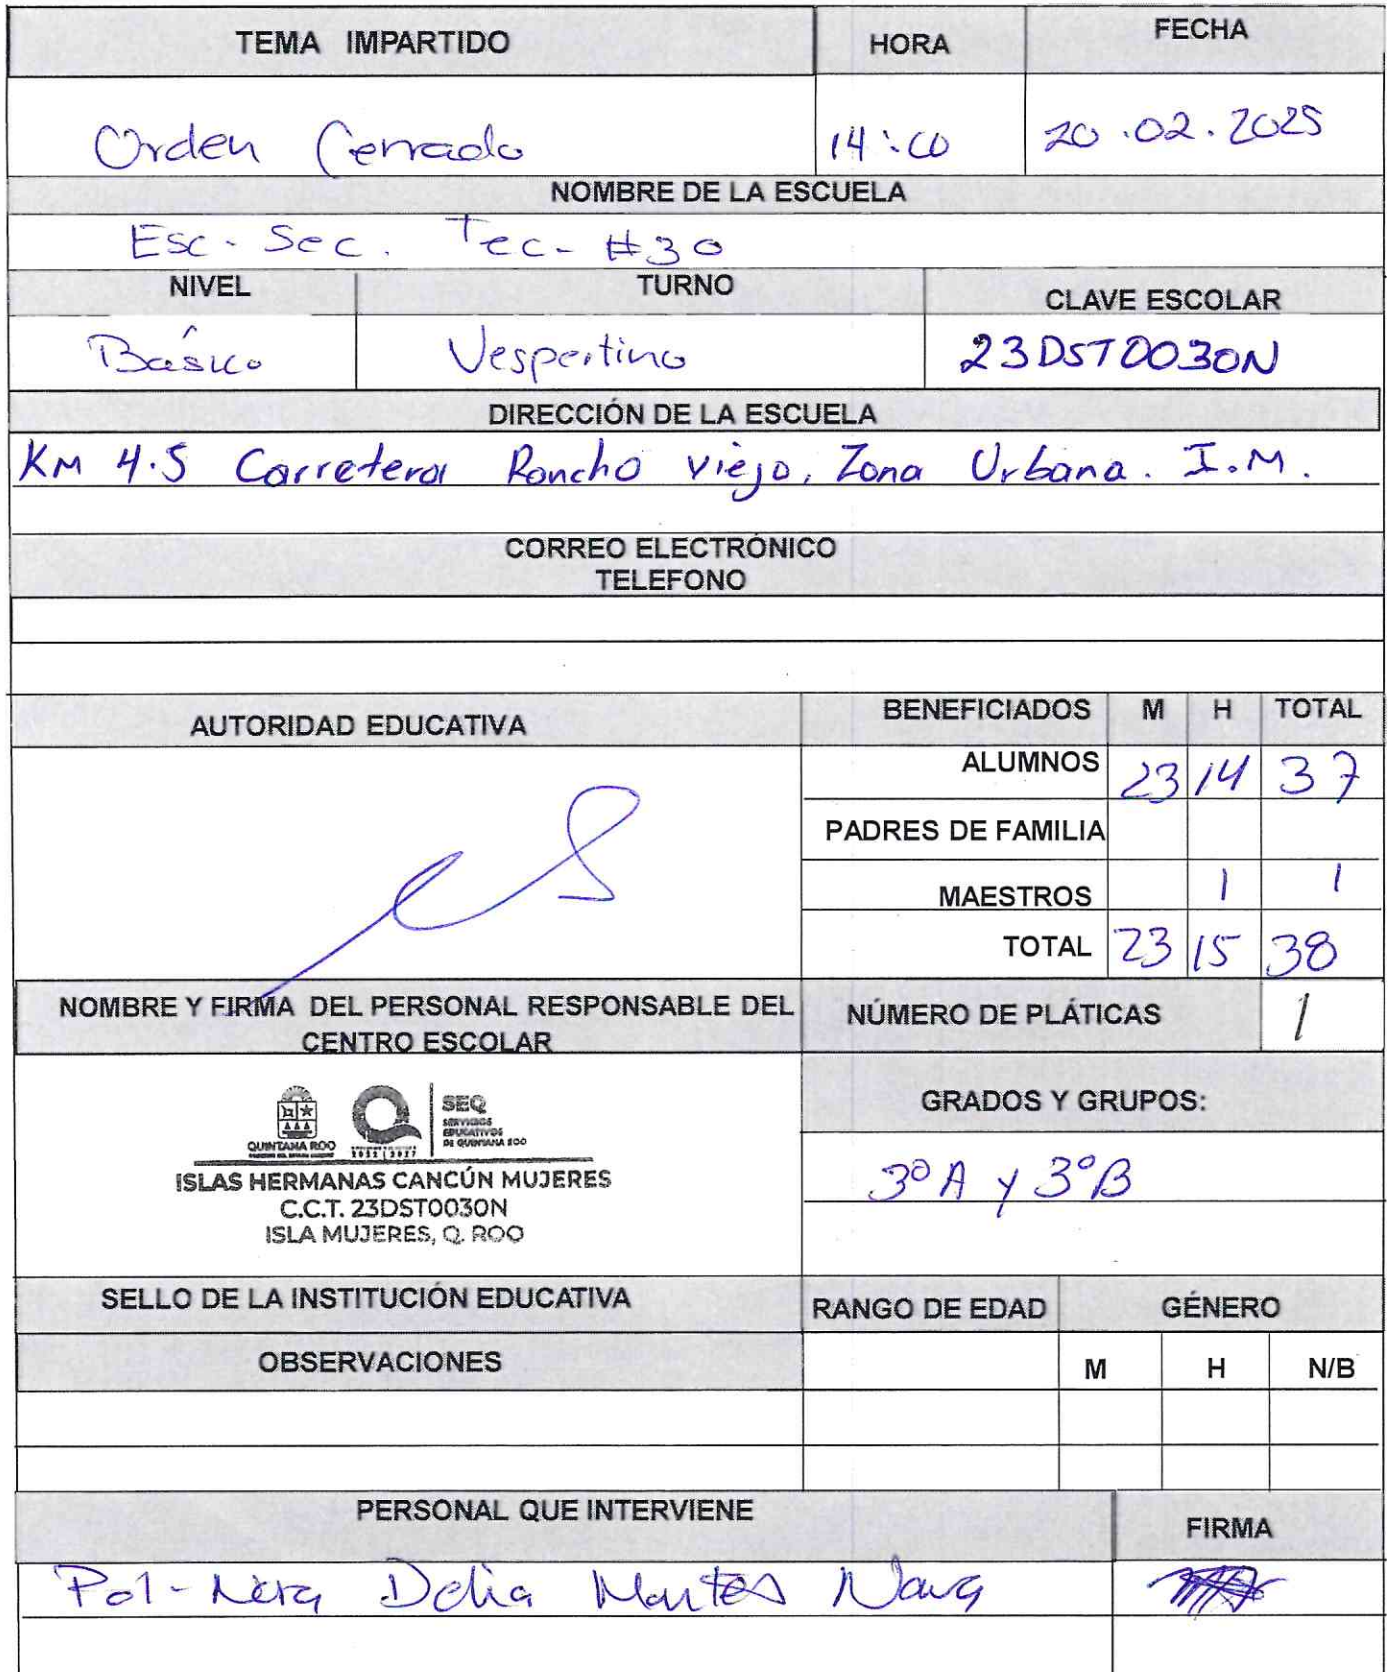 TEMA IMPARTIDO HORA FECHA
Orden Cerrado 14:00 20.02.2025
NOMBRE DE LA ESCUELA
Esc. Sec. Tec. #30
NIVEL TURNO CLAVE ESCOLAR
Básico Vespertino 23DST0030N
DIRECCIÓN DE LA ESCUELA
KM 4.5 Carretera Rancho viejo, Zona Urbana. I.M.
CORREO ELECTRÓNICO
TELEFONO
AUTORIDAD EDUCATIVA BENEFICIADOS M H TOTAL
ALUMNOS 23 14 37
PADRES DE FAMILIA
MAESTROS 1 1
TOTAL 23 15 38
NOMBRE Y FIRMA DEL PERSONAL RESPONSABLE DEL
CENTRO ESCOLAR
NÚMERO DE PLÁTICAS 1
SEQ
SERVICIOS
EDUCATIVOS
DE QUINTANA ROO
QUINTANA ROO
2022 | 2027
ISLAS HERMANAS CANCÚN MUJERES
C.C.T. 23DST0030N
ISLA MUJERES, Q. ROO
GRADOS Y GRUPOS:
3º A y 3º B
SELLO DE LA INSTITUCIÓN EDUCATIVA RANGO DE EDAD GÉNERO
OBSERVACIONES M H N/B
PERSONAL QUE INTERVIENE FIRMA
Pol- Delia Montes Nava